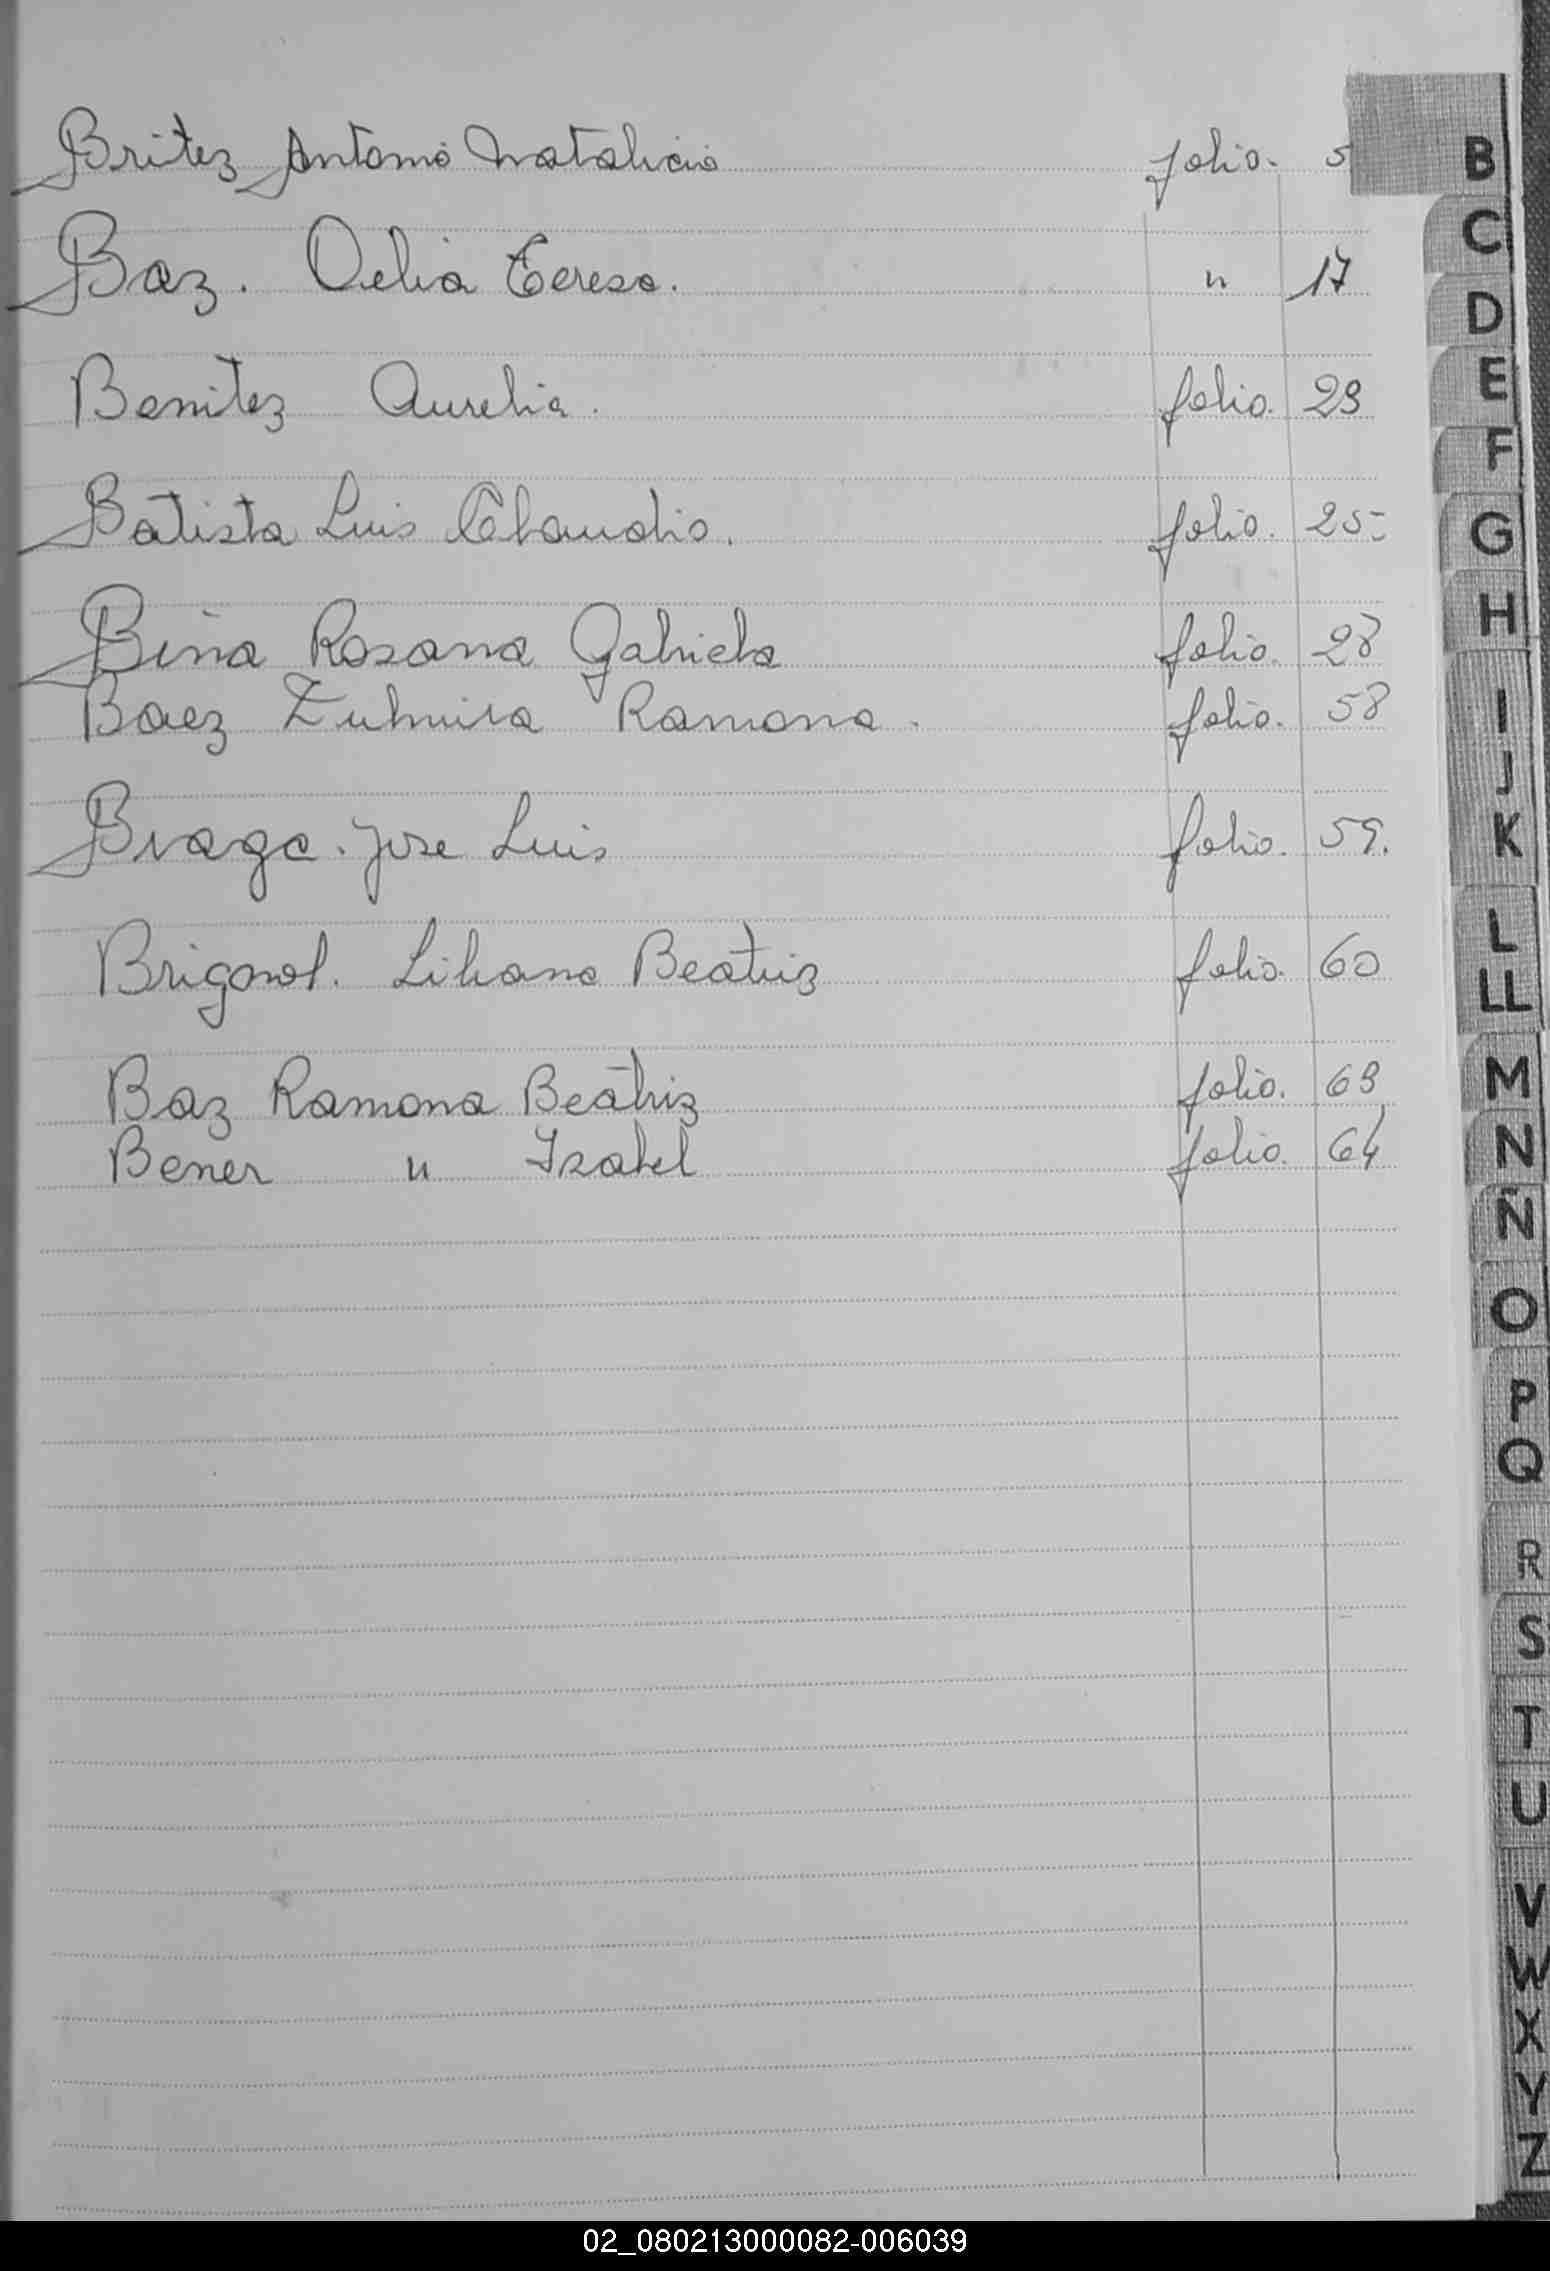 Britez Antonio Natalicio folio. 5
Baz. Delia Teresa. " 17
Benitez Aurelia. folio. 23
Batista Luis Claudio. folio. 25-
Bina Rosana Gabriela folio. 28
Baez Zulmira Ramona. folio. 58
Braga. Jose Luis folio. 59.
Brigonol. Liliana Beatriz folio. 60
Baz Ramona Beatriz folio. 63
Bener " Isabel folio. 64
B
C
D
E
F
G
H
I
J
K
L
LL
M
N
Ñ
O
P
Q
R
S
T
U
V
W
X
Y
Z
02_080213000082-006039